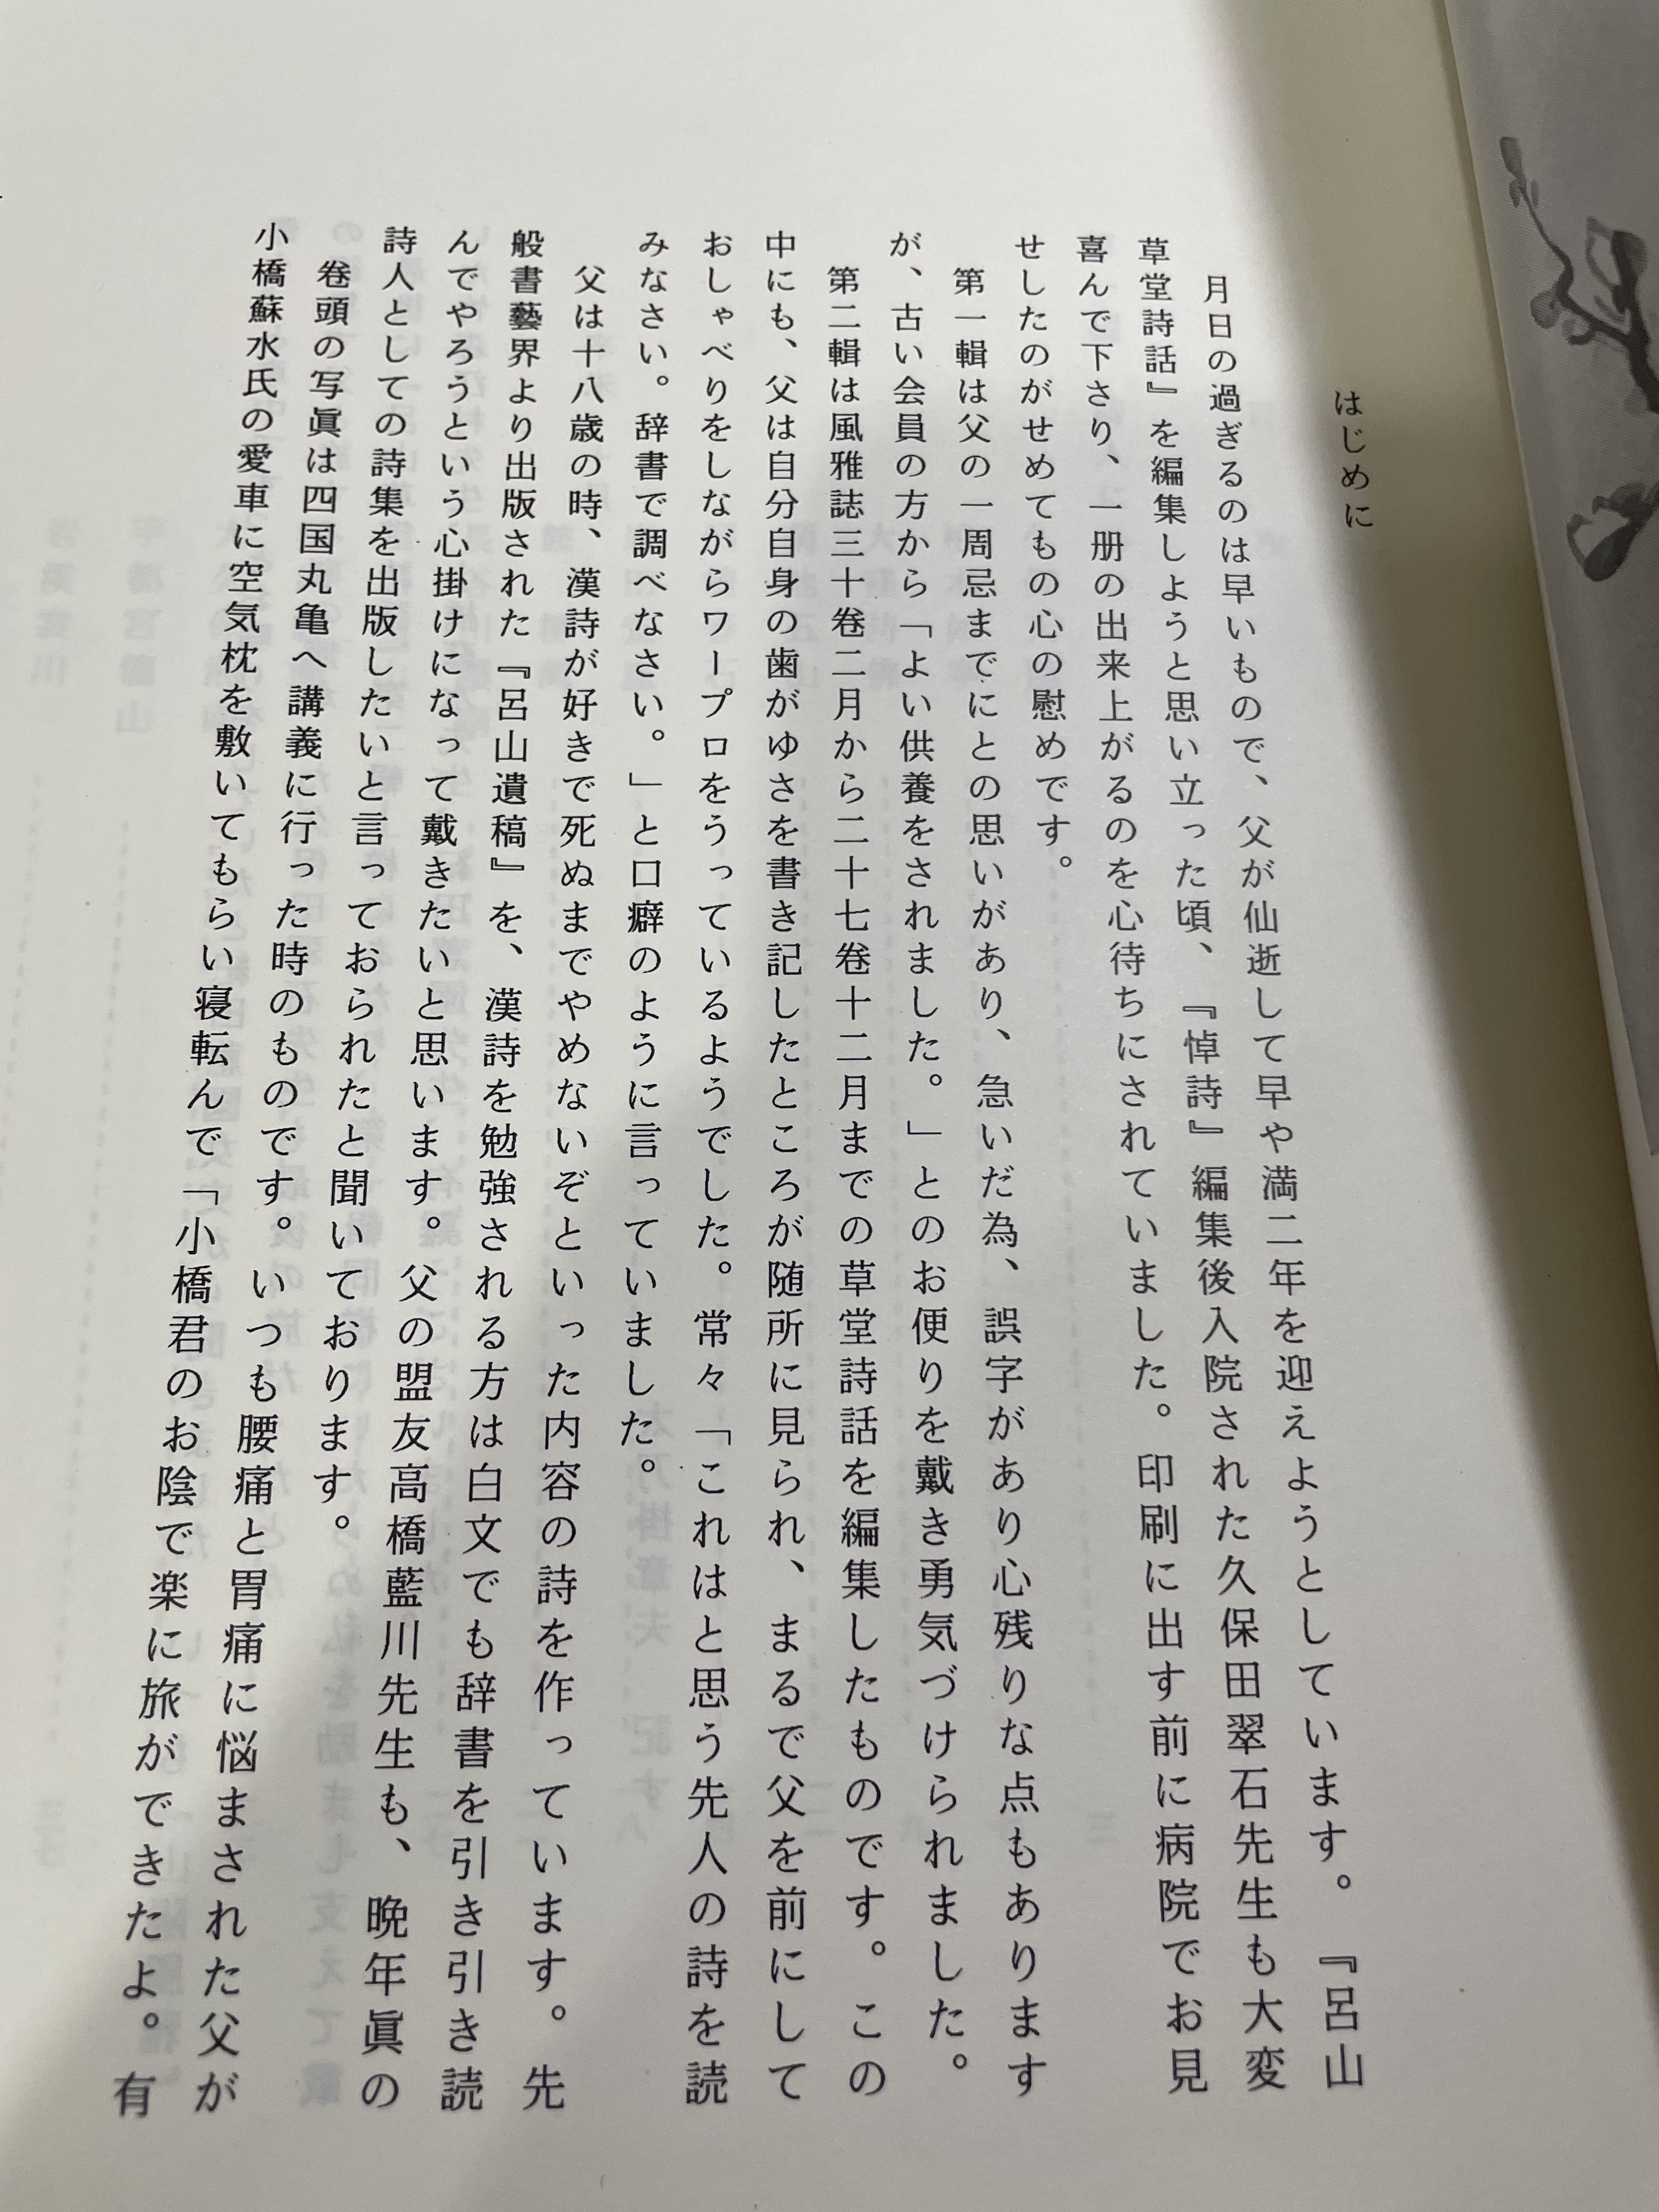 はじめに
月日の過ぎるのは早いもので、父が仙逝して早や満二年を迎えようとしています。『呂山
草堂詩話』を編集しようと思い立った頃、『悼詩』編集後入院された久保田翠石先生も大変
喜んで下さり、一册の出来上がるのを心待ちにされていました。印刷に出す前に病院でお見
せしたのがせめてもの心の慰めです。
第一輯は父の一周忌までにとの思いがあり、急いだ為、誤字があり心残りな点もあります
が、古い会員の方から「よい供養をされました。」とのお便りを戴き勇気づけられました。
第二輯は風雅誌三十巻二月から二十七巻十二月までの草堂詩話を編集したものです。この
中にも、父は自分自身の歯がゆさを書き記したところが随所に見られ、まるで父を前にして
おしゃべりをしながらワープロをうっているようでした。常々「これはと思う先人の詩を読
みなさい。辞書で調べなさい。」と口癖のように言っていました。
父は十八歳の時、漢詩が好きで死ぬまでやめないぞといった内容の詩を作っています。先
般書藝界より出版された『呂山遺稿』を、漢詩を勉強される方は白文でも辞書を引き引き読
んでやろうという心掛けになって戴きたいと思います。父の盟友高橋藍川先生も、晩年眞の
詩人としての詩集を出版したいと言っておられたと聞いております。
巻頭の写眞は四国丸亀へ講義に行った時のものです。いつも腰痛と胃痛に悩まされた父が
小橋蘇水氏の愛車に空気枕を敷いてもらい寝転んで「小橋君のお陰で楽に旅ができたよ。有